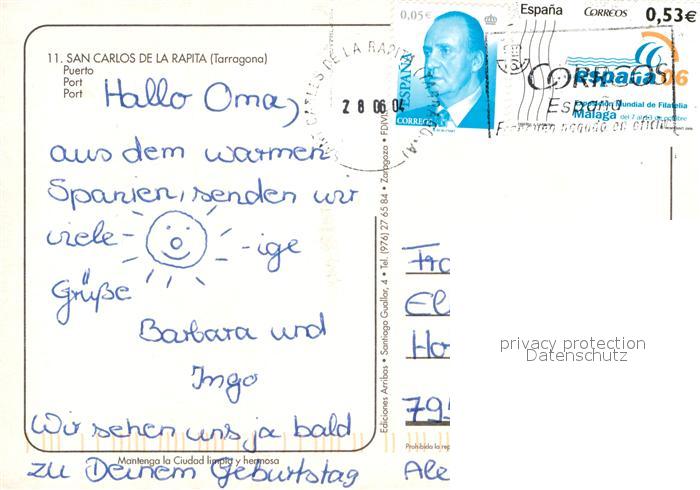 11. SAN CARLOS DE LA RAPITA (Tarragona)
Puerto
Port
Port
Hallo Oma,
aus dem warmen
Spanien, senden wir
viele - -ige
Grüße
Barbara und
Ingo
Wir sehen uns ja bald
zu Deinem Geburtstag
Mantenga la Ciudad limpia y hermosa
Ediciones Arribas • Santiago Guallar, 4 • Tel. (976) 27 65 84 • Zaragoza • FDIVI
Prohibida la rep
0,05€
ESPAÑA
CORREOS
SAN CARLES DE LA RAPITA (TARRAGONA)
28 06 04
España CORREOS 0,53€
España 06
Exposición Mundial de Filatelia
Málaga del 7 al 13 de octubre
CORREOS
España
Franqueo pagado en oficina
Fra
El
Ho
795
Ale
privacy protection
Datenschutz